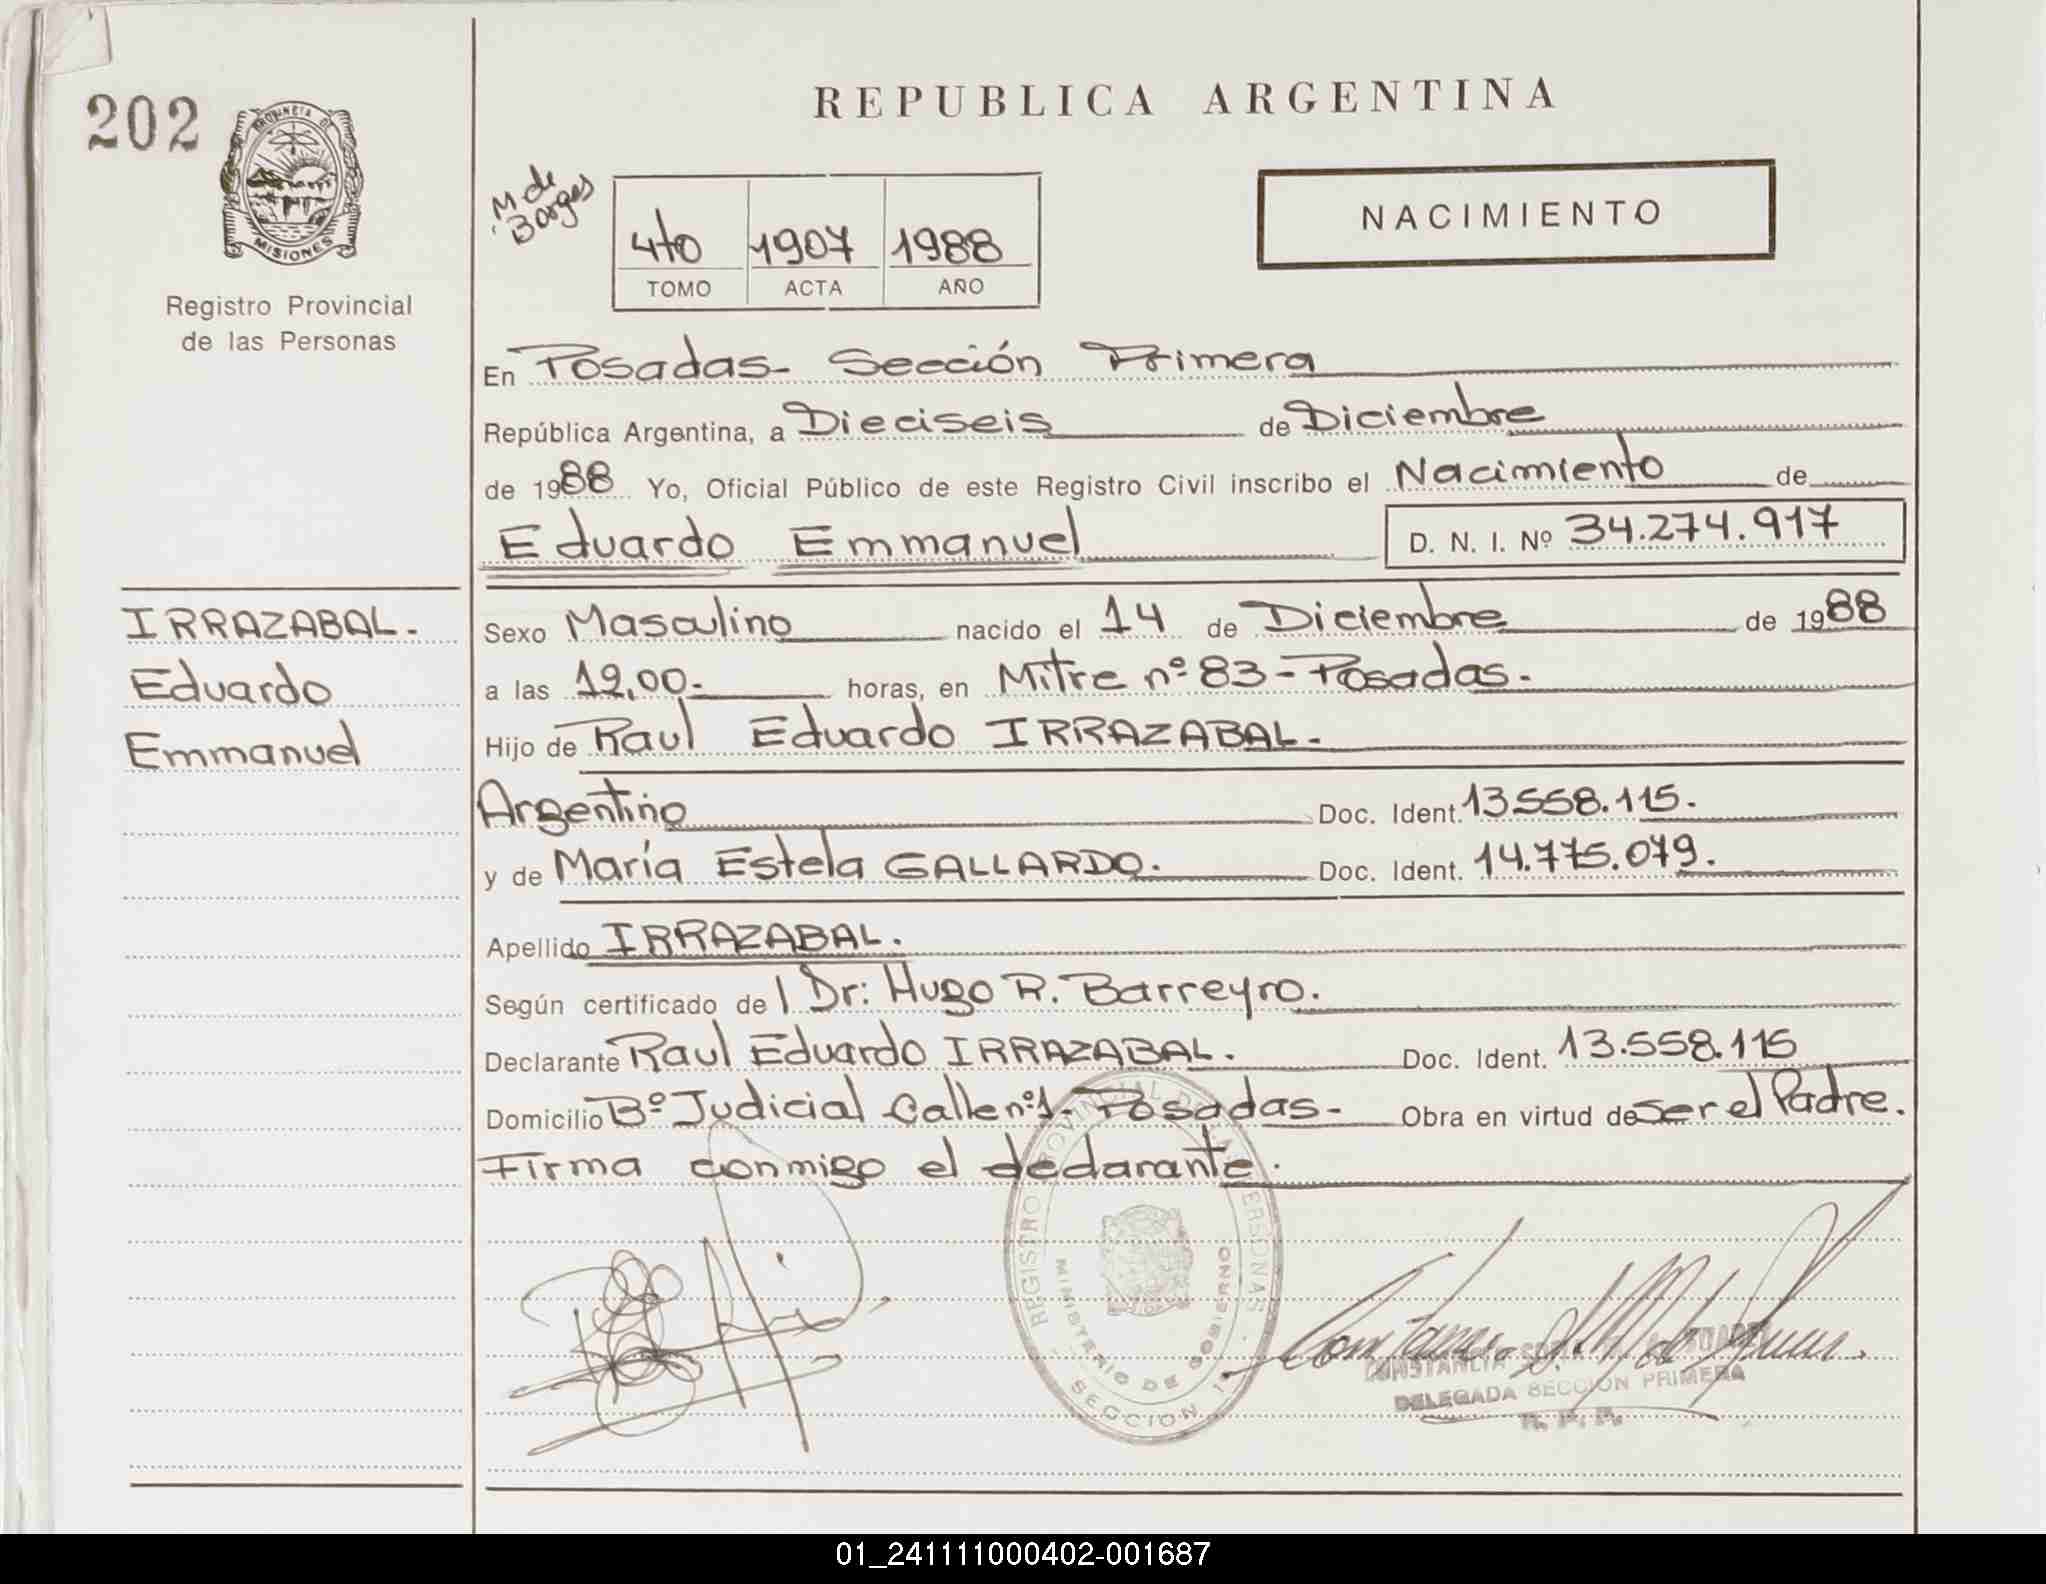 202
PROVINCIA DE
MISIONES
Registro Provincial
de las Personas
REPUBLICA ARGENTINA
M de
Borges
4to 1907 1988
TOMO ACTA AÑO
NACIMIENTO
En Posadas- Sección Primera
República Argentina, a Dieciseis de Diciembre
de 1988 Yo, Oficial Público de este Registro Civil inscribo el Nacimiento de
Eduardo Emmanuel D. N. I. Nº 34.274.917
IRRAZABAL.
Eduardo
Emmanuel
Sexo Masculino nacido el 14 de Diciembre de 1988
a las 12,00.- horas, en Mitre nº 83-Posadas.
Hijo de Raul Eduardo IRRAZABAL.
Argentino Doc. Ident. 13.558.115.
y de María Estela GALLARDO. Doc. Ident. 14.775.079.
Apellido IRRAZABAL.
Según certificado de l Dr: Hugo R. Barreyro.
Declarante Raul Eduardo IRRAZABAL. Doc. Ident. 13.558.115
Domicilio Bº Judicial Calle nº1- Posadas- Obra en virtud de ser el Padre.
Firma conmigo el declarante.
REGISTRO PROVINCIAL DE LAS PERSONAS
MINISTERIO DE GOBIERNO
SECCION 1
DELEGADA SECCION PRIMERA
R. P. P.
01_241111000402-001687